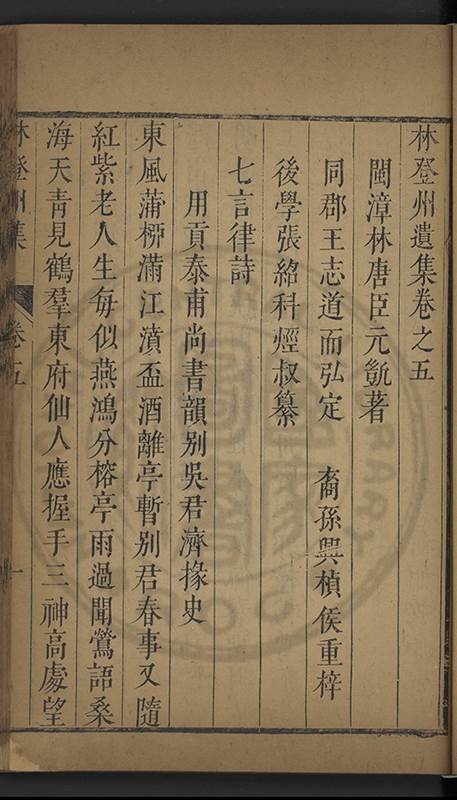 林登州遺集卷之五
閩漳林唐臣元凱著
同郡王志道而弘定 裔孫興楨侯重梓
後學張紹科烴叔纂
七言律詩
用貢泰甫尚書韻别吳君濟掾史
東風蒲柳滿江濆盃酒離亭暫别君春事又隨
紅紫老人生每似燕鴻分榕亭雨過聞鶯語桑
海天青見鶴羣東府仙人應握手三神高處望
林登州集 卷五 一